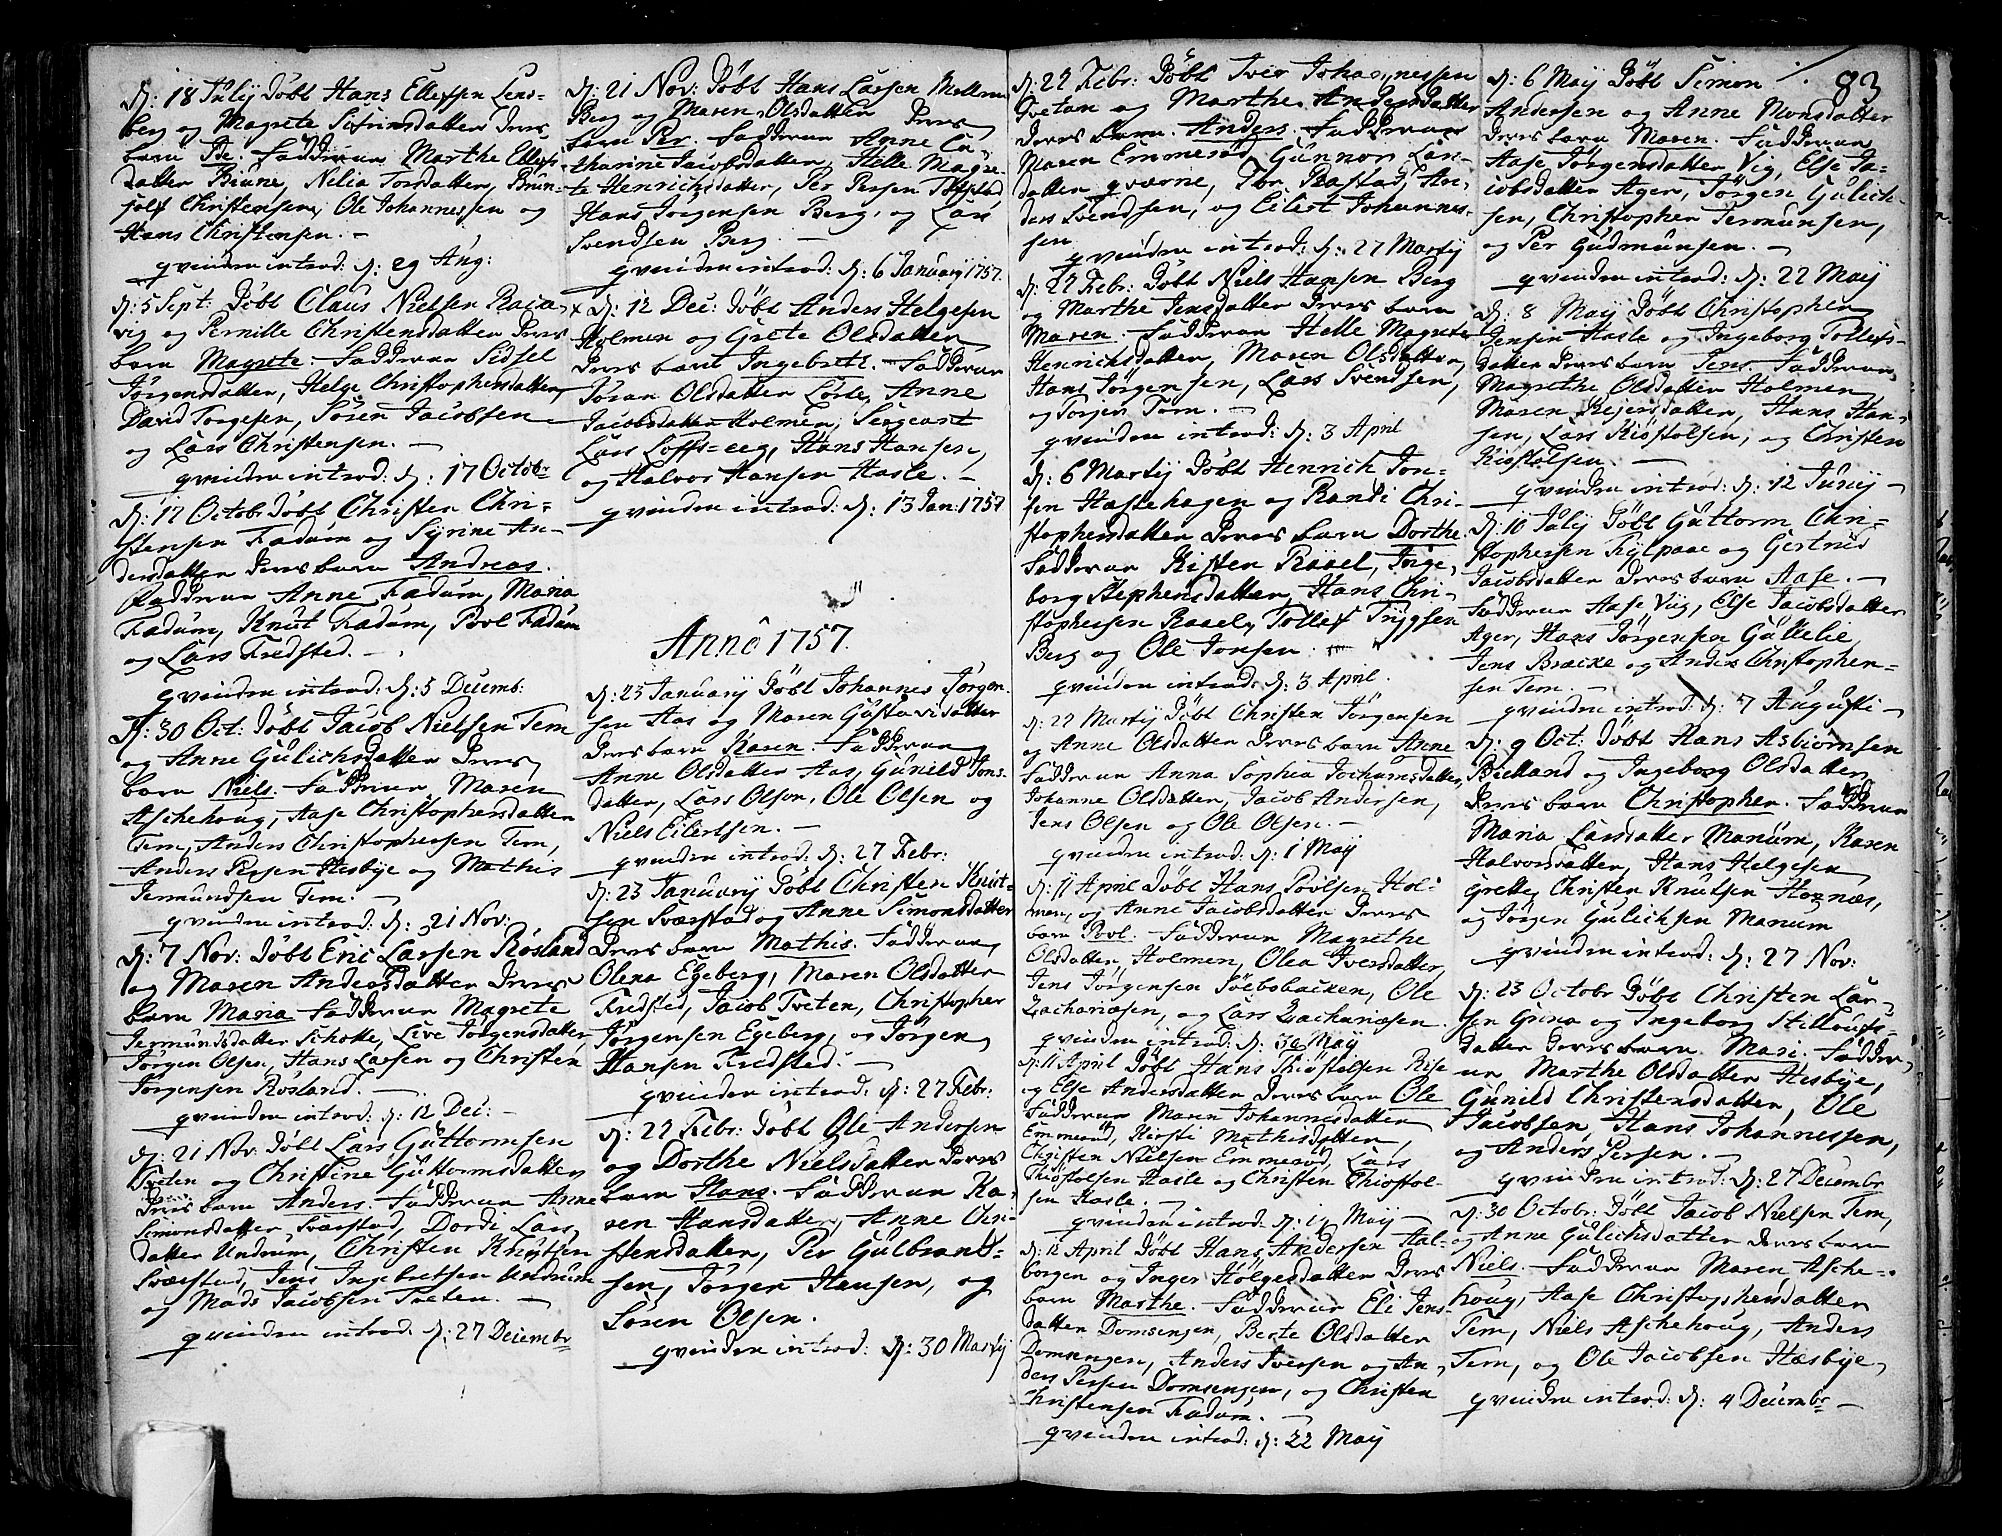 d: 18 Julij Döbt Hans Ellefsen Lens=
berg og Magrete Sörensdatter Deres
barn Fadderne Marthe Ellefs
datter Biune, Nelia Torsdatter, Brun=
jolf Christensen, Ole Johannessen og
Hans Christensen. —
qvinden introd: d: 29 Aug:
d: 5 Sept: Döbt Claus Nielsen Raea
vig og Pernille Christensdatter Deres
barn Magrete Fadderne Sidsel
Jörgensdatter, Helge Christophersdatter,
David Torgesen, Sören Jacobsen
og Lars Christensen. —
qvinden introd: d: 17 Octobr
d: 17 Octob: Döbt Christen Chri=
stensen Fadum og Syrine An=
dersdatter Deres barn Andreas.
Fadderne Anne Fadum, Maria
Fadum, Knut Fadum, Povl Fadum
og Lars Fredsted. —
qvinden introd: d: 5 Decemb:
d: 30 Oct: Döbt Jacob Nielsen Tem
og Anne Gulichsdatter Deres
barn Niels. Fadderne Maren
Aschehoug, Aase Christophersdatter
Tem, Anders Christophersen Tem,
Anders Persen Hesbye og Mathis
Jermundsen Tem. —
qvinden introd: d: 21 Nov:
d: 7 Nov: Döbt Eric Larsen Rösland
og Maren Andersdatter Deres
barn Maria Fadderne Magrete
Jermundsdatter Schotte, Live Jörgensdatter
Jörgen Olsen, Hans Larsen og Christen
Jörgensen Rösland. —
qvinden introd: d: 12 Dec: —
d: 21 Nov: Döbt Lars Guttormsen
Tveten og Christine Guttormsdatter
Deres barn Anders. Fadderne Anne
Simonsdatter Svarstad, Dordi Lars
datter Undrum, Christen Knutsen
Svarstad, Jens Ingebretsen Undrum
og Mads Jacobsen Tveten. —
qvinden introd. d: 27 Decembr
d: 21 Nov: Döbt Hans Larsen Mellem
Berg og Maren Olsdatter Deres
barn Per. Fadderne Anne Ca=
tharine Jacobsdatter, Helle Magre=
te Henrichsdatter, Per Persen
Hans Jörgensen Berg, og Lars
Svendsen Berg. —
qvinden introd: d: 6 Januarij 1757.
x d: 12 Dec: Döbt Anders Helgesen
Holmen og Grete Olsdatter
Deres barn Ingebret. Fadderne
Joran Olsdatter Anne
Jacobsdatter Holmen, Sergeant
Lars Hans Hansen,
og Halvor Hansen Hasle. —
qvinden introd: d: 13 Jan: 1757
Anno 1757.
d: 23 Januarij Döbt Johannes Jörgen=
sen Aas og Maren Gustavsdatter
Deres barn Karen. Fadderne
Anne Olsdatter Aas, Gunild Jons
datter, Lars Olsen, Ole Olsen og
Niels Eilertsen. —
qvinden introd: d: 27 Febr:
d: 23 Januarij Döbt Christen Knut=
sen Svarstad og Anne Simonsdatter
Deres barn Mathis. Fadderne,
Olena Egeberg, Maren Olsdatter
Fredsted, Jacob Tveten, Christopher
Jörgensen Egeberg, og Jörgen
Hansen Fredsted. —
qvinden introd: d: 27 Febr:
d: 22 Febr: Döbt Ole Andersen
og Dorthe Nielsdatter Deres
barn Hans. Fadderne Ka=
ren Hansdatter, Anne Chri=
stensdatter, Per Gulbrand=
sen, Jörgen Hansen, og
Sören Olsen.
qvinden introd: d: 30 Martij
d: 22 Febr: Döbt Iver Johannessen
Tvetan og Marthe Andersdatter
Deres barn. Anders. Fadderne
Maren Emmeröd, Gunnor Lars=
datter qvarne, Tbr Rastad, An=
ders Svendsen, og Eilert Johannes=
sen
qvinden introd: d: 27 Martij
d: 22 Febr: Döbt Niels Hansen Berg
og Marthe Jensdatter Deres barn
Maren. Fadderne Helle Magrete
Henrichsdatter, Maren Olsdatter,
Hans Jörgensen, Lars Svendsen,
og Torger Tem. —
qvinden introd: d: 3 April
d: 6 Martij Döbt Henrich Jon=
sen Haslehagen og Randi Chri=
stophersdatter Deres barn Dorthe.
Fadderne Kisten Rövel, Inge=
borg Stephensdatter, Hans Chri=
stophersen Ravel, Tollef Trygsen
Berg og Ole Jonsen.
qvinden introd: d: 3 April.
d: 22 Martij Döbt Christen Jörgensen
og Anne Olsdatter Deres barn Anne
Fadderne Anna Sophia Jochumsdatter,
Johanne Olsdatter, Jacob Andersen,
Jens Olsen og Ole Olsen. —
qvinden introd: d: 1 May
d: 11 April Döbt Hans Povlsen Hol=
men, og Anne Jacobsdatter Deres
barn Povl. Fadderne Magrethe
Olsdatter Holmen, Olea Iversdatter,
Jens Jörgensen Söebsbacken, Ole
Zachariasen, og Lars Zachariasen
qvinden introd: d: 30 May
d: 11 April Döbt Hans Thiöstolsen Rise
og Else Andersdatter Deres barn Ole
Fadderne Maren Johannesdatter
Emmeröd, Kirsti Mathisdatter,
Christen Nielsen Emmeröd, Lars
Thiöstolsen Hasle og Christen Thiostol=
sen Hasle. —
qvinden introd. d: 14 May —
d: 11 April Döbt Hans Andersen Hal=
borgen og Inger Holgesdatter Deres
barn Marthe. Fadderne Eli Jens=
datter Domsengen, Berte Olsdatter
Domsengen, Anders Iversen og An=
ders Persen Domsengen, og Christen
Christensen Fadum. —
qvinden introd: d: 22 May
83
d: 6 May Döbt Simon
Andersen og Anne Monsdatter
Deres barn Maren. Fadderne
Aase Jörgensdatter Vig, Else Ja=
cobsdatter Ager, Jörgen Gulich=
sen, Christopher Jermunsen,
og Per Gudmunsen. —
qvinden introd: d: 22 May
d: 8 May Döbt Christopher
Jensen Hasle og Ingeborg Tollefs=
datter Deres barn Jens. Fadderne
Magrethe Olsdatter Holmen
Maren Rejersdatter, Hans Han=
sen, Lars Kiöstolsen, og Christen
Kiöstolsen. —
qvinden introd: d: 12 Junij —
d: 10 Julij Döbt Guttorm Chri=
stophersen Fylpaae og Gertrud
Jacobsdatter Deres barn Aase. —
Fadderne Aase Viig, Else Jacobsdatter
Ager, Hans Jörgensen Gullelie,
Jens Bracke og Anders Christophen=
sen Tem. —
qvinden introd: d: 7 Augusti —
d: 9 Oct: Döbt Hans Asbiörnsen
Bielland og Ingeborg Olsdatter
Deres barn Christopher. Fadderne
Maria Larsdatter Manum, Karen
Halvorsdatter, Hans Helgesen
grette, Christen Knutsen Hornæs,
og Jörgen Gulichsen Manum
qvinden introd: d: 27 Nov:
d: 23 Octobr Döbt Christen Lar=
sen Grina og Ingeborg Stillaufs=
datter Deres barn. Mari. Fadder=
ne Marthe Olsdatter Hesbye,
Gunild Christensdatter, Ole
Jacobsen, Hans Johannessen,
og Anders Persen. —
qvinden introd: d: 27 Decembr
d: 30 Octobr: Döbt Jacob Nielsen Tem,
og Anne Gulichsdatter Deres barn
Niels. Fadderne Maren Asche=
houg, Aase Christophersdatter
Tem, Niels Aschehoug, Anders
Tem, og Ole Jacobsen Hæsbye,
qvinden introd: d: 4 Decembr —